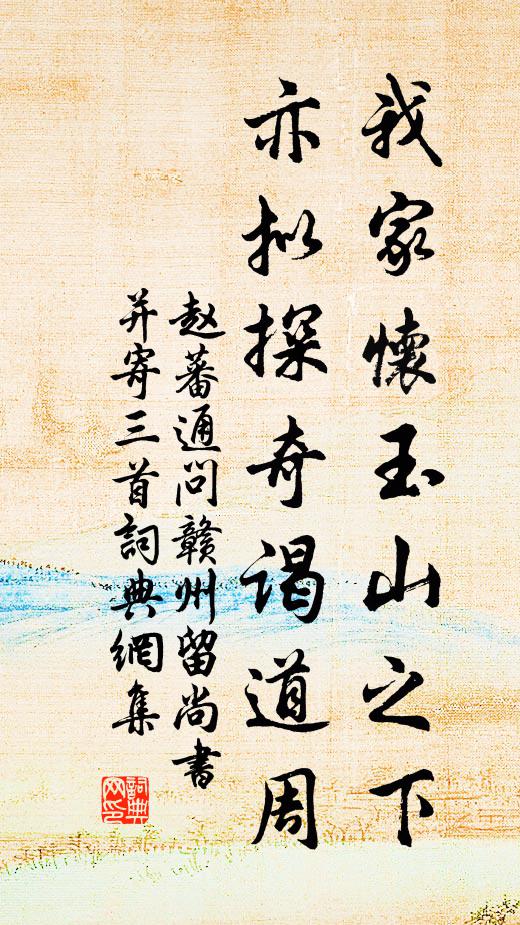 我家懷玉山之下
亦拟探奇谒道周
赵蕃通问赣州留尚書
并寄三首詞典網集
詞典
网印